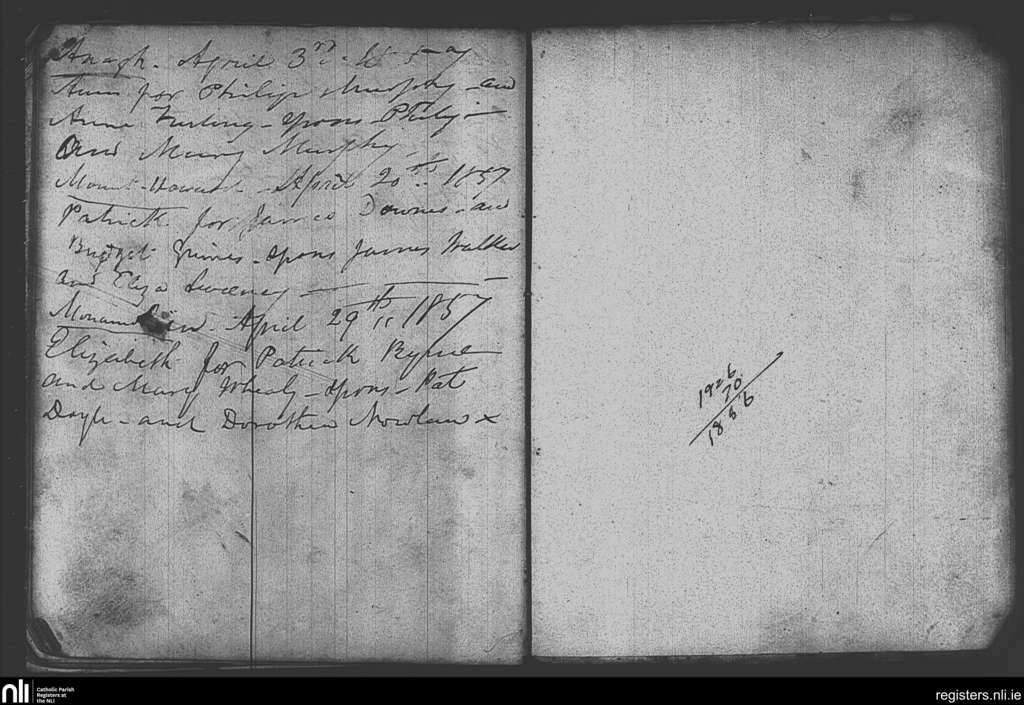 Anagh. April 3rd
Ann for Philip Murphy and
Anna Furlong - Spons - Philip
and Mary Murphy
Mount-Howard - April 20th 1857
Patrick for James Downes and
Bridget Grimes - Spons James Walker
and Eliza Sweeney
April 29th 1857
Elizabeth for Patrick Byrne
and Mary Whealy - Spons - Pat
Doyle - and Dorothea Nowlan x
1926
70
1856
nli
Catholic Parish
Registers at
the NLI
registers.nli.ie